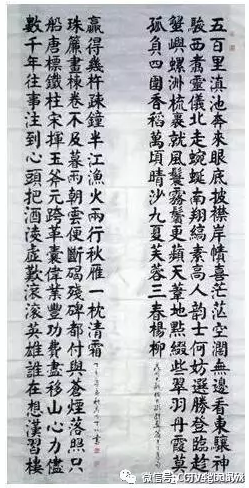 五百里滇池奔來眼底披襟岸幘喜茫茫空闊無邊看東驤神
駿西翥靈儀北走蜿蜒南翔縞素高人韻士何妨選勝登臨趁
蟹嶼螺洲梳裹就風鬟霧鬢更蘋天葦地點綴些翠羽丹霞莫
孤負四圍香稻萬頃晴沙九夏芙蓉三春楊柳
數千年往事注到心頭把酒凌虛歎滾滾英雄誰在想漢習樓
船唐標鐵柱宋揮玉斧元跨革囊偉業豐功費盡移山心力儘
珠簾畫棟卷不及暮雨朝雲便斷碣殘碑都付與蒼煙落照只
贏得幾杵疎鐘半江漁火兩行秋雁一枕清霜
微信号